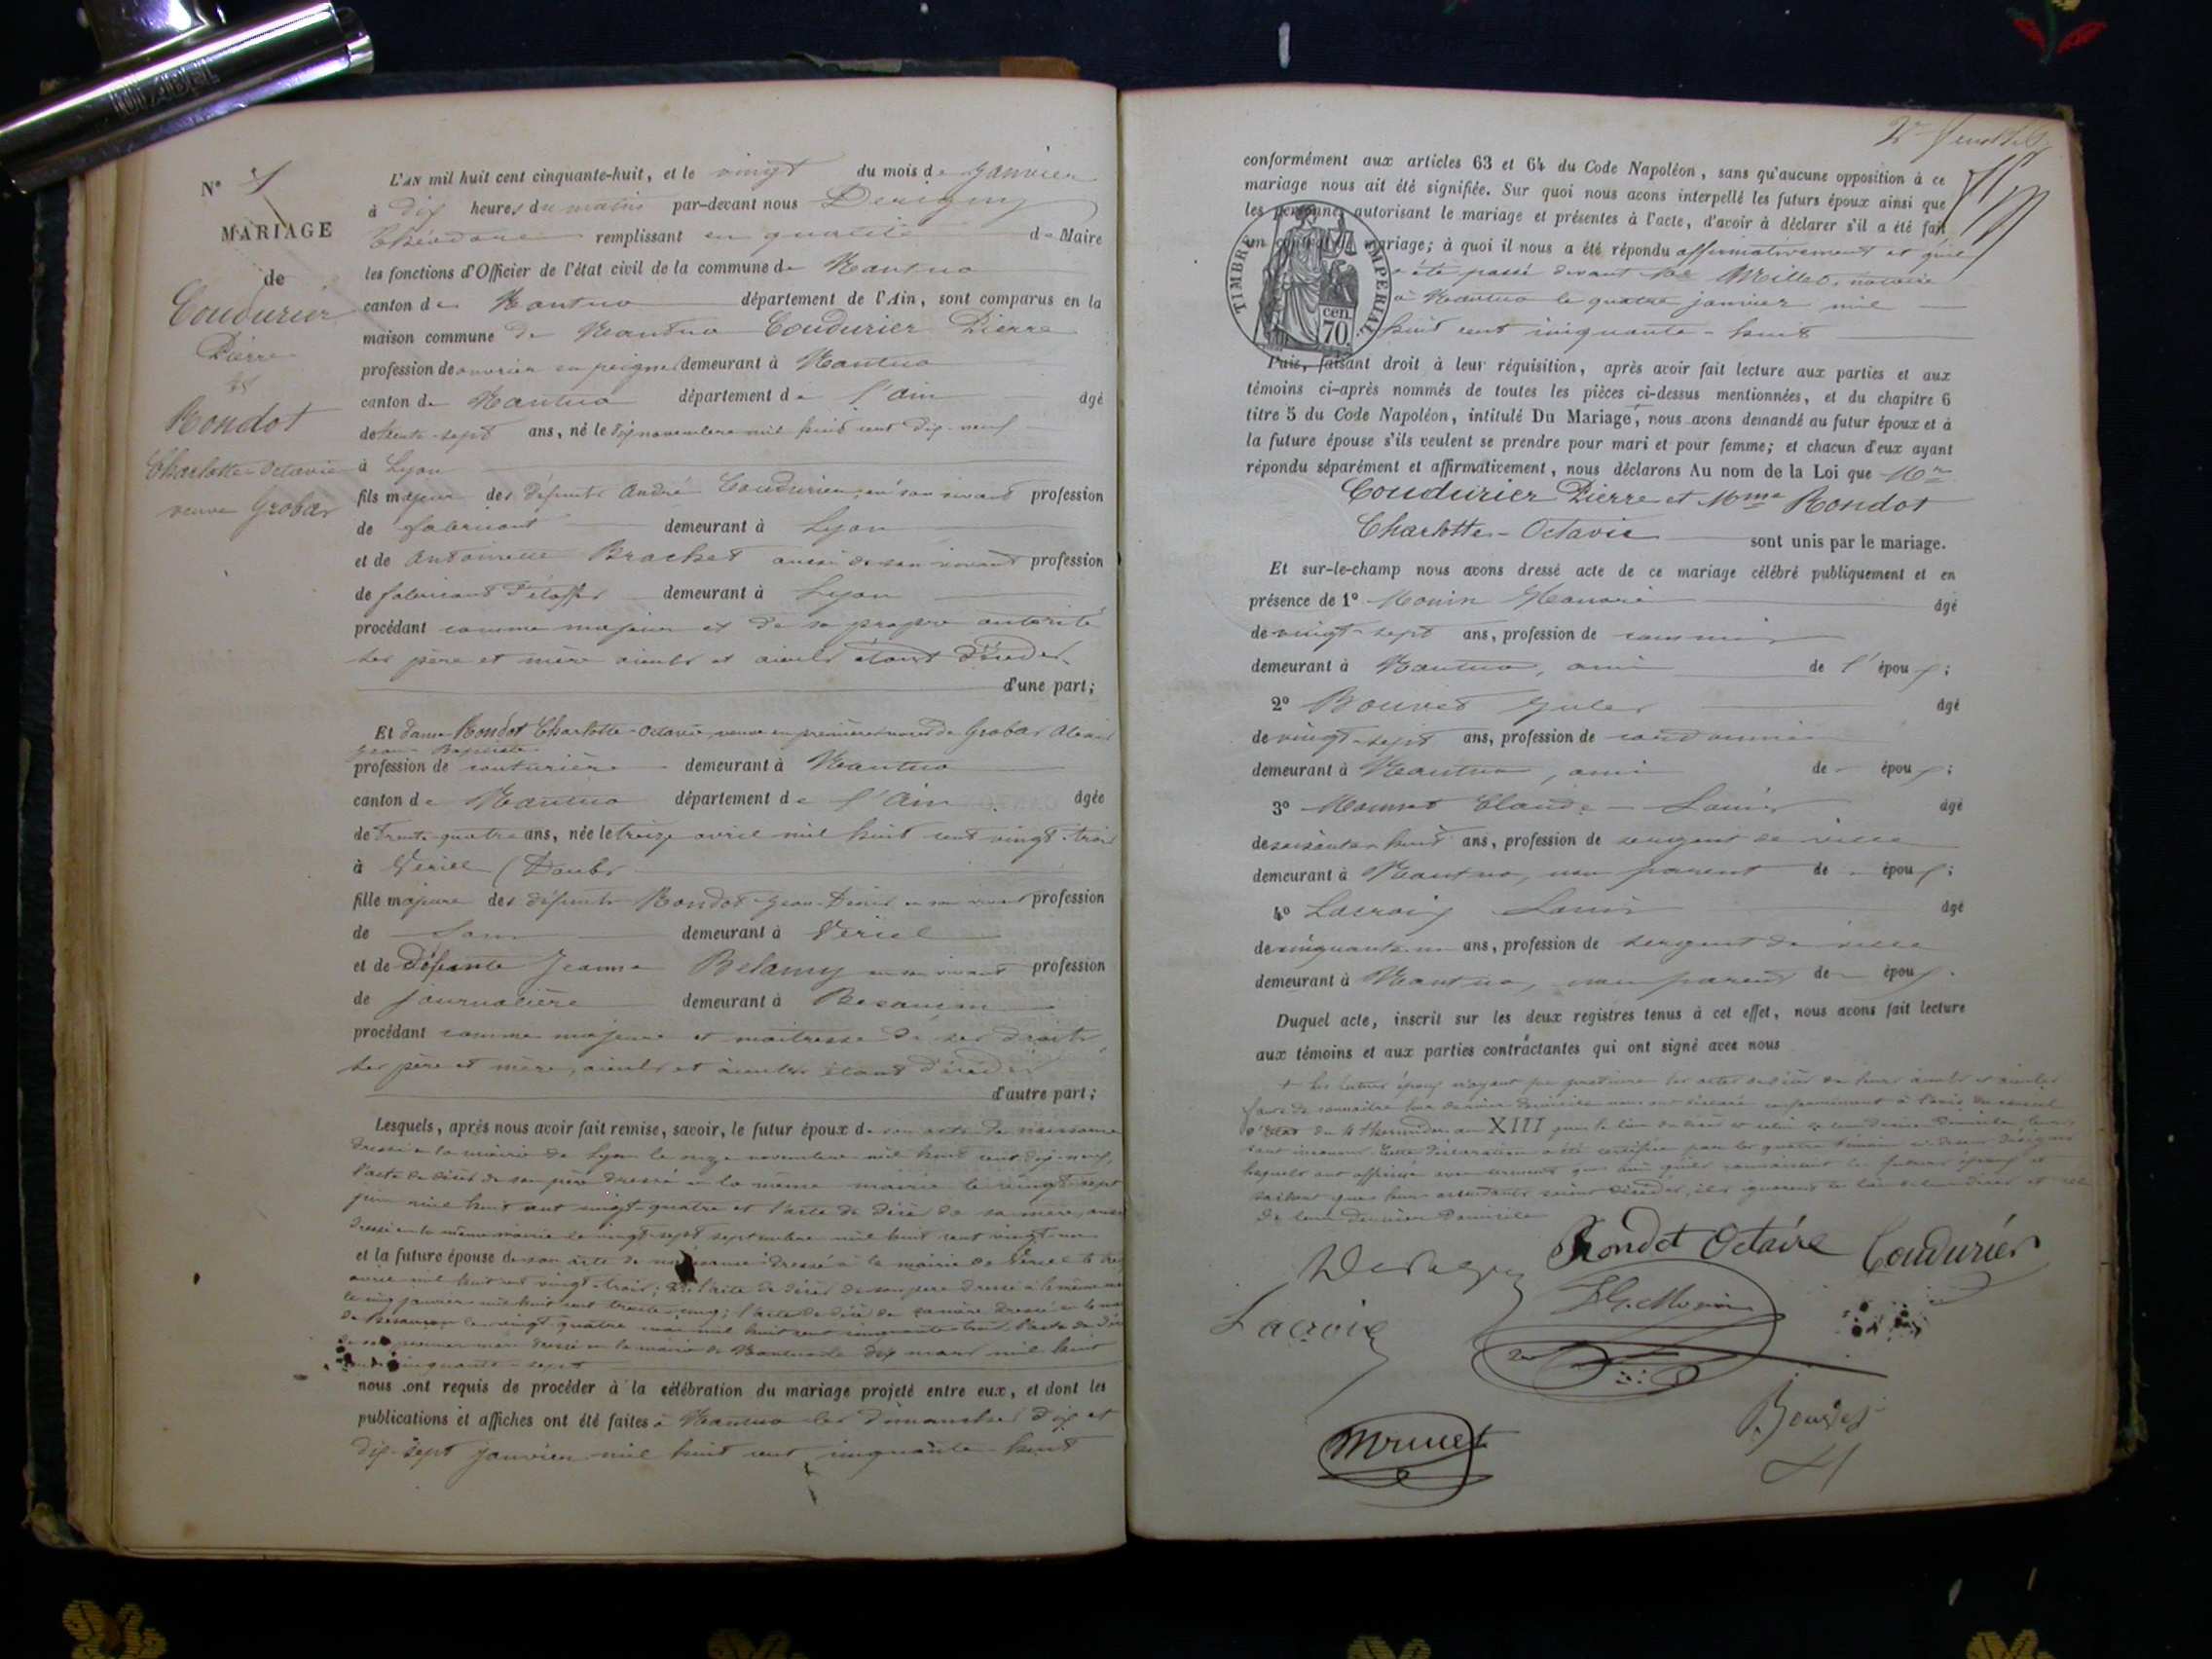 N° 1
MARIAGE
de
Coudurier
Pierre
et
Rondot
Charlotte-Octavie
veuve Grobas
L'AN mil huit cent cinquante-huit, et le vingt du mois de janvier
à dix heures du matin par-devant nous
Théodore remplissant en qualité de Maire
les fonctions d'Officier de l'état civil de la commune de Nantua
canton de Nantua département de l'Ain, sont comparus en la
maison commune de Nantua Coudurier Pierre
profession de ouvrier en peignes demeurant à Nantua
canton de Nantua département de l'Ain âgé
de trente-sept ans, né le dix novembre mil huit cent dix-neuf
à Lyon
fils majeur des défunts André Coudurier, en son vivant profession
de fabricant demeurant à Lyon
et de Antoinette Brachet aussi de son vivant profession
de fabricant d'étoffes demeurant à Lyon
procédant comme majeur et de sa propre autorité
ses père et mère aïeuls et aïeules étant décédés
d'une part;
Et dame Rondot Charlotte-Octavie, veuve en premières noces de Grobas Alexis
Jean Baptiste
profession de couturière demeurant à Nantua
canton de Nantua département de l'Ain âgée
de trente-quatre ans, née le treize avril mil huit cent vingt-trois
à Vercel (Doubs
fille majeure des défunts Rondot Jean-Denis en son vivant profession
de demeurant à Vercel
et de défunte Jeanne Belamy en son vivant profession
de journalière demeurant à Besançon
procédant comme majeure et maîtresse de ses droits,
ses père et mère, aïeuls et aïeules étant décédés
d'autre part;
Lesquels, après nous avoir fait remise, savoir, le futur époux de son acte de naissance
dressé à la mairie de Lyon le onze novembre mil huit cent dix-neuf,
l'acte de décès de son père dressé à la même mairie le vingt-sept
juin mil huit cent vingt-quatre et l'acte de décès de sa mère, aussi
dressé en la même mairie le vingt-sept septembre mil huit cent vingt-un
et la future épouse de son acte de naissance dressé à la mairie de Vercel le
avril mil huit cent vingt-trois; de l'acte de décès de son père dressé à la même
le cinq janvier mil huit cent trente-cinq; l'acte de décès de sa mère dressé en la
de Besançon le vingt quatre mai mil huit cent cinquante-trois, l'acte de
de son premier mari dressé en la mairie de Nantua le dix mars mil huit
cent cinquante-sept
nous ont requis de procéder à la célébration du mariage projeté entre eux, et dont les
publications et affiches ont été faites à Nantua les dimanches dix et
dix-sept janvier mil huit cent cinquante-huit
conformément aux articles 63 et 64 du Code Napoléon, sans qu'aucune opposition à ce
mariage nous ait été signifiée. Sur quoi nous avons interpellé les futurs époux ainsi que
les personnes autorisant le mariage et présentes à l'acte, d'avoir à déclarer s'il a été fait
un contrat de mariage; à quoi il nous a été répondu affirmativement et qu'il
a été passé devant Me Millet, notaire
à Nantua le quatre janvier mil
huit cent cinquante-huit
TIMBRE IMPÉRIAL
cen.
70.
Puis, faisant droit à leur réquisition, après avoir fait lecture aux parties et aux
témoins ci-après nommés de toutes les pièces ci-dessus mentionnées, et du chapitre 6
titre 5 du Code Napoléon, intitulé Du Mariage, nous avons demandé au futur époux et à
la future épouse s'ils veulent se prendre pour mari et pour femme; et chacun d'eux ayant
répondu séparément et affirmativement, nous déclarons Au nom de la Loi que Mr
Coudurier Pierre et Mme Rondot
Charlotte-Octavie sont unis par le mariage.
Et sur-le-champ nous avons dressé acte de ce mariage célébré publiquement et en
présence de 1° Monin Honoré âgé
de vingt-sept ans, profession de commis
demeurant à Nantua, ami de l'époux;
2° Bouvet Jules âgé
de vingt-sept ans, profession de cordonnier
demeurant à Nantua, ami de époux;
3° Mounet Claude-Louis âgé
de soixante-huit ans, profession de sergent de ville
demeurant à Nantua, non parent de époux;
4° Lacroix Louis âgé
de cinquante-un ans, profession de sergent de ville
demeurant à Nantua, non parent de époux.
Duquel acte, inscrit sur les deux registres tenus à cet effet, nous avons fait lecture
aux témoins et aux parties contractantes qui ont signé avec nous
+ Les futurs époux n'ayant pu produire les actes de décès de leurs aïeuls et aïeules
faute de connaître leur dernier domicile nous ont déclaré conformément à l'avis du conseil
d'état du 4 thermidor an XIII que le lieu du décès et celui de leur dernier domicile leur
sont inconnus. Cette déclaration a été certifiée par les quatre témoins ci-dessus désignés
lesquels ont affirmé avec serment que bien qu'ils connaissent les futurs époux et
sachant que leurs ascendants soient décédés, ils ignorent le lieu de leur décès et celui
de leur dernier domicile
Rondot Octavie Coudurier
Lacroix
Mounet
Bouvet